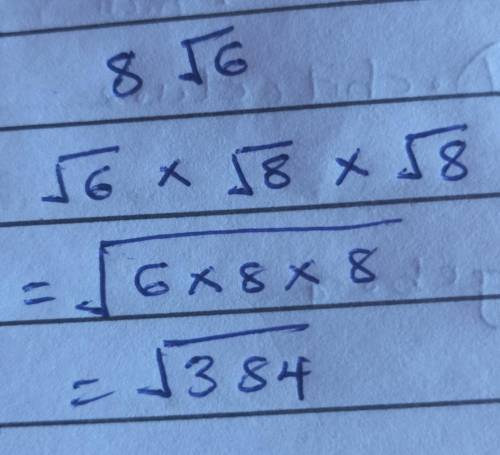 8 √6
√6 × √8 × √8
= √(6 × 8 × 8)
= √384